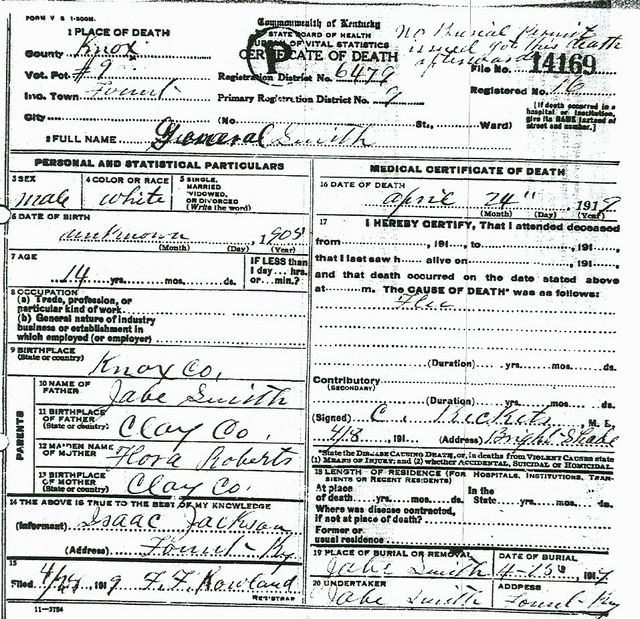 FORM V S 1-500M.
Commonwealth of Kentucky
STATE BOARD OF HEALTH
BUREAU OF VITAL STATISTICS
CERTIFICATE OF DEATH
No Burial permit
issued got this death
afterwards
1 PLACE OF DEATH
County Knox
Vot. Pct #9
Inc. Town
City
Registration District No. 6479
Primary Registration District No. 7
(No. St., Ward)
File No. 14169
Registered No. 16
[If death occurred in a
hospital or institution,
give its NAME instead of
street and number.]
2 FULL NAME General Smith
PERSONAL AND STATISTICAL PARTICULARS
3 SEX
male
4 COLOR OR RACE
White
5 SINGLE,
MARRIED
WIDOWED,
OR DIVORCED
(Write the word)
6 DATE OF BIRTH
unknown, 1905
(Month) (Day) (Year)
7 AGE
14 yrs. mos. ds.
IF LESS than
1 day... hrs.
or... min.?
8 OCCUPATION
(a) Trade, profession, or
particular kind of work
(b) General nature of industry
business or establishment in
which employed (or employer)
9 BIRTHPLACE
(State or country)
Knox Co,
PARENTS
10 NAME OF
FATHER
Jabe Smith
11 BIRTHPLACE
OF FATHER
(State or country)
Clay Co.
12 MAIDEN NAME
OF MOTHER
Flora Roberts
13 BIRTHPLACE
OF MOTHER
(State or country)
Clay Co.
14 THE ABOVE IS TRUE TO THE BEST OF MY KNOWLEDGE
(Informant) Isaac Jackson
(Address) Ky
15
Filed 1919 F. F. Rowland
REGISTRAR
11-3184
MEDICAL CERTIFICATE OF DEATH
16 DATE OF DEATH
April 24", 1919
(Month) (Day) (Year)
17 I HEREBY CERTIFY, That I attended deceased
from, 191, to, 191,
that I last saw h alive on, 191,
and that death occurred on the date stated above
at m. The CAUSE OF DEATH* was as follows:
Flu
(Duration) yrs. mos. ds.
Contributory
(SECONDARY)
(Duration) yrs. mos. ds.
(Signed) C. Rickets, M. D.
4/28, 191 (Address) Bright Shade
*State the DISEASE CAUSING DEATH, or, in deaths from VIOLENT CAUSES state
(1) MEANS OF INJURY; and (2) whether ACCIDENTAL, SUICIDAL or HOMICIDAL.
18 LENGTH OF RESIDENCE (FOR HOSPITALS, INSTITUTIONS, TRAN-
SIENTS OR RECENT RESIDENTS)
At place In the
of death yrs. mos. ds. State yrs. mos. ds.
Where was disease contracted,
if not at place of death?
Former or
usual residence
19 PLACE OF BURIAL OR REMOVAL
Jabe Smith
DATE OF BURIAL
4-25th 1919
20 UNDERTAKER
Jabe Smith
ADDRESS
Ky